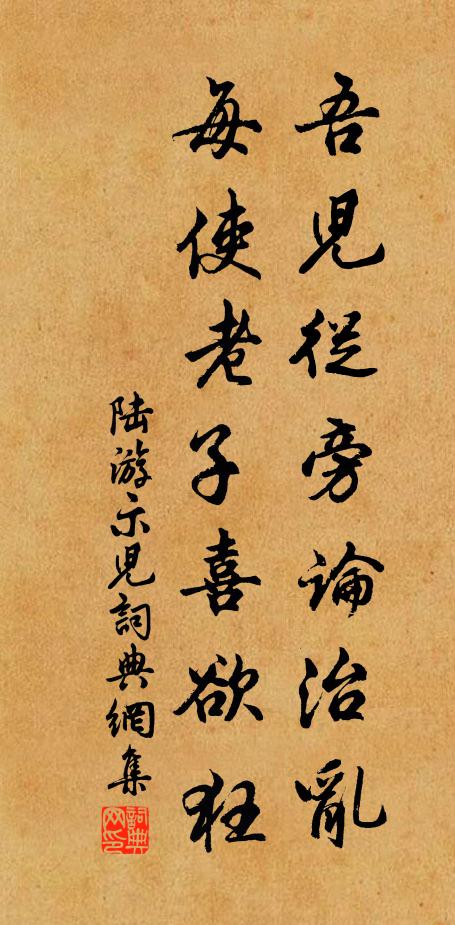 吾兒從旁論治亂
每使老子喜欲狂
陆游示兒詞典網集
詞典网印